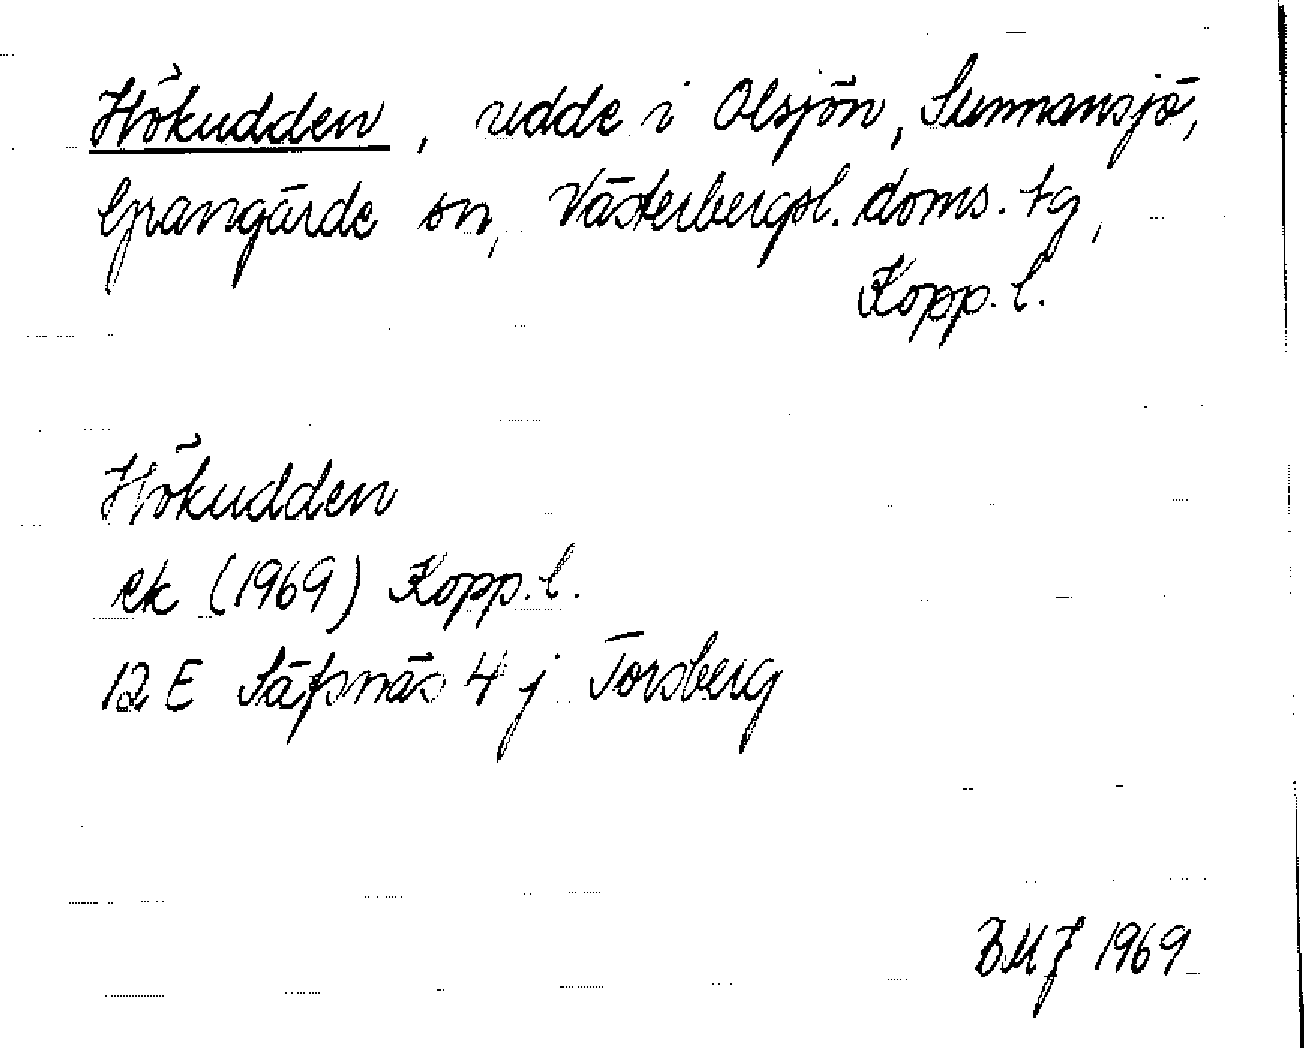 Hökudden, udde i Olsjön, Sunnansjö,
Grangärde sn, Västerbergsl. doms. tg,
Kopp. l.
Hökudden
ek (1969) Kopp. l.
12 E Säfsnäs 4 j Torsberg
BMJ 1969